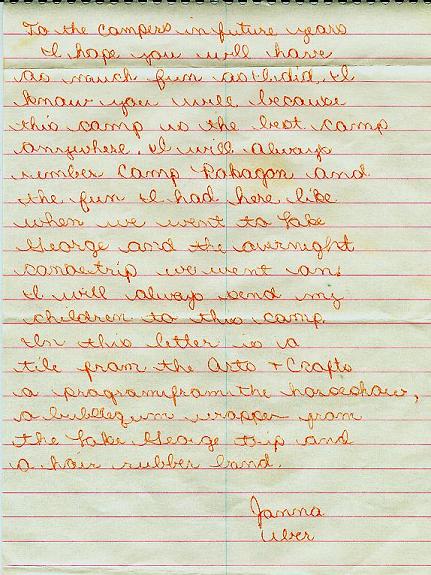 To the campers in future years
I hope you will have
as much fun as I did. I
know you will because
this camp is the best camp
anywhere. I will always
rember Camp Pokagon and
the fun I had here like
when we went to Lake
George and the overnight
canoetrip we went on.
I will always send my
children to this camp.
In this letter is a
tile from the Arts + Crafts
a programfrom the horseshow,
a bubblegum wrapper from
the Lake George trip and
a hair rubber band.
Janna
Uber